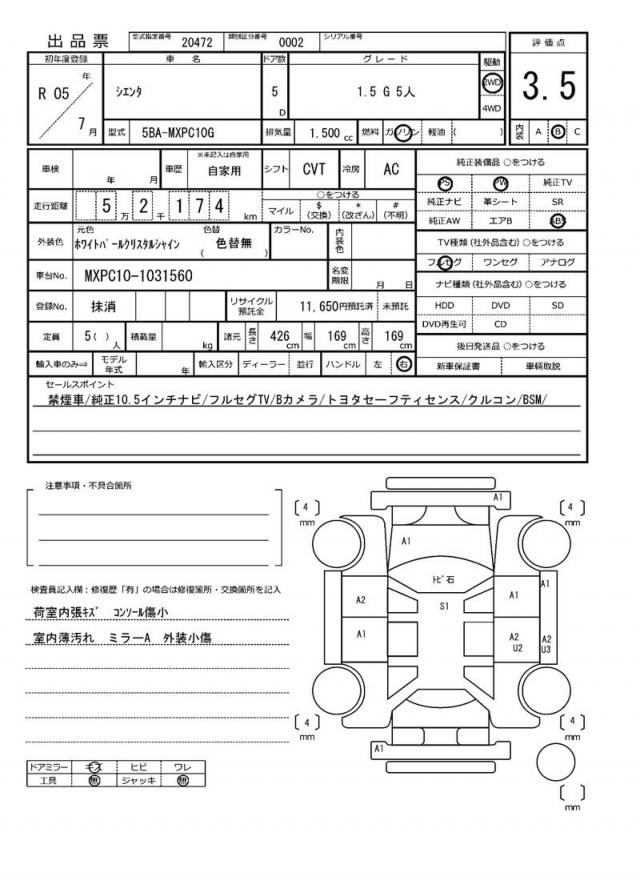 出品票 型式指定番号 20472 類別区分番号 0002 シリアル番号
評価点
3.5
内装 A B C
初年度登録 車名 ドア数 グレード 駆動
R 05 年 7 月 シエンタ 5 D 1.5 G 5人 2WD 4WD
型式 5BA-MXPC10G 排気量 1,500 cc 燃料 ガソリン 軽油 ( )
車検 年 月 車歴 ※未記入は自家用 自家用 シフト CVT 冷房 AC
走行距離 5 万 2 千 1 7 4 km
○をつける
マイル $ (交換) * (改ざん) # (不明)
外装色 元色 ホワイトパールクリスタルシャイン 色替 ( 色替無 ) カラーNo. 内装色
車台No. MXPC10-1031560 名変期限 月 日
登録No. 抹消 リサイクル預託金 11,650円預託済 未預託
定員 5( ) 人 積載量 kg 諸元 長さ 426 cm 幅 169 cm 高さ 169 cm
輸入車のみ⇒ モデル年式 年 輸入区分 ディーラー 並行 ハンドル 左 右
純正装備品 ○をつける
PS PW 純正TV
純正ナビ 革シート SR
純正AW エアB ABS
TV種類(社外品含む) ○をつける
フルセグ ワンセグ アナログ
ナビ種類(社外品含む) ○をつける
HDD DVD SD
DVD再生可 CD
後日発送品 ○をつける
新車保証書 車輌取説
セールスポイント
禁煙車/純正10.5インチナビ/フルセグTV/Bカメラ/トヨタセーフティセンス/クルコン/BSM/
注意事項・不具合箇所
検査員記入欄:修復歴「有」の場合は修復箇所・交換箇所を記入
荷室内張キズ コンソール傷小
室内薄汚れ ミラーA 外装小傷
ドアミラー キズ ヒビ ワレ
工具 無 ジャッキ 無
A1
[ 4 ] mm
[ 4 ] mm
A1
トビ石
S1
A2
A1
A1
A1
A2 U2
A2 U3
[ 4 ] mm
[ 4 ] mm
A1
[ ] mm